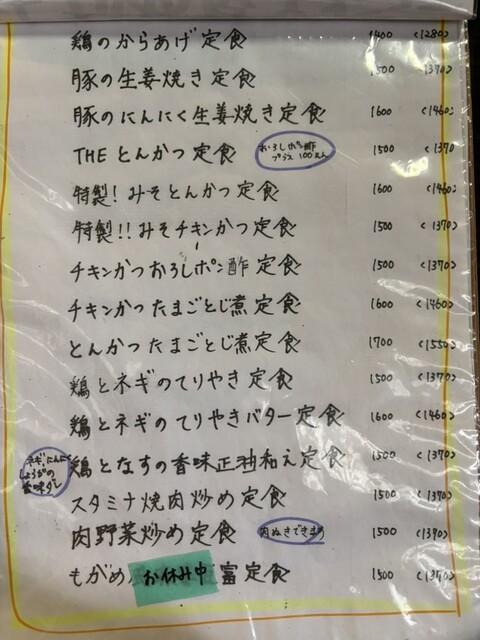 鶏のからあげ定食 1400 (1280)
豚の生姜焼き定食 1500 (1370)
豚のにんにく生姜焼き定食 1600 (1460)
THEとんかつ定食 おろしポン酢プラス100えん 1500 (1370
特製!みそとんかつ定食 1600 (1460)
特製!!みそチキンかつ定食 1500 (1370)
チキンかつおろしポン酢定食 1500 (1370)
チキンかつたまごとじ煮定食 1600 (1460)
とんかつたまごとじ煮定食 1700 (1550)
鶏とネギのてりやき定食 1500 (1370)
鶏とネギのてりやきバター定食 1600 (1460)
ネギ、にんにく
しょうがの
香味ダレ
鶏となすの香味正油和え定食 1500 (1370)
スタミナ焼肉炒め定食 1500 (1370)
肉野菜炒め定食 肉ぬきできます 1500 (1370)
もがめ お休み中 富定食 1500 (1370)